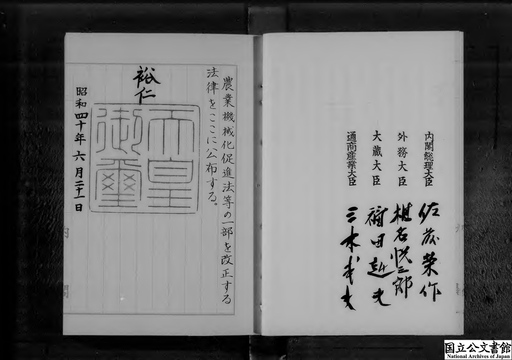 内閣総理大臣 佐藤榮作
外務大臣 椎名悦三郎
大蔵大臣 福田赳夫
通商産業大臣 三木武夫
農業機械化促進法等の一部を改正する
法律をここに公布する。
裕仁
天皇
御璽
昭和四十年六月二十一日
国立公文書館
National Archives of Japan